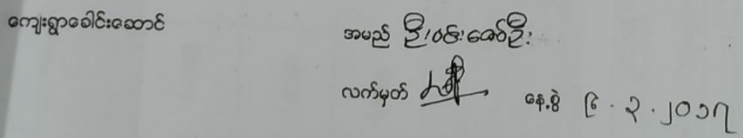 ကျေးရွာခေါင်းဆောင် အမည် ဦးဝင်းဇော်ဦး
လက်မှတ် နေ့စွဲ ၆.၃.၂၀၁၇